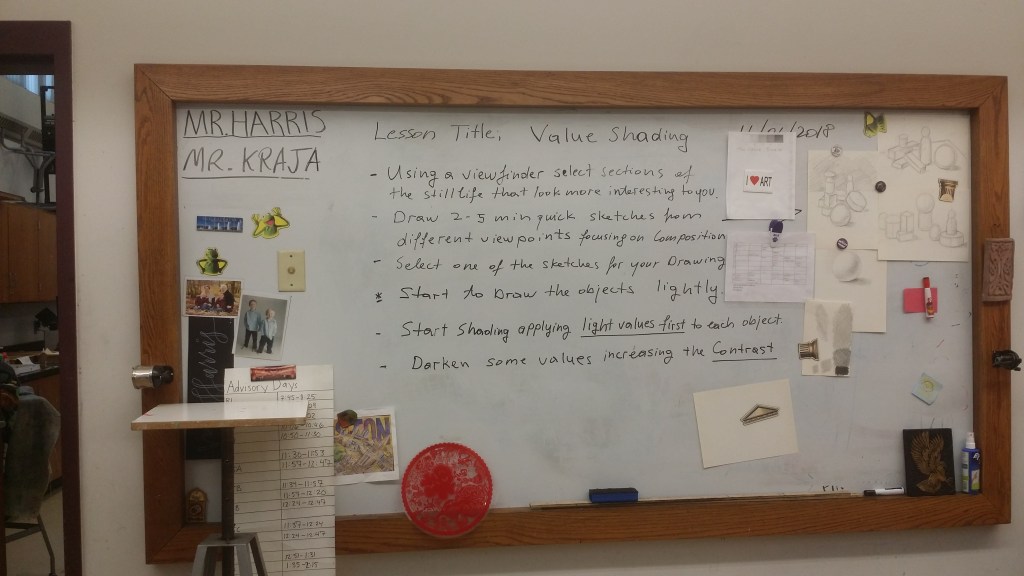 MR. HARRIS
MR. KRAJA
Lesson Title: Value Shading
11/01/2018
- Using a viewfinder select sections of
the still life that look more interesting to you.
- Draw 2-5 min quick sketches from
different viewpoints focusing on Composition
- Select one of the sketches for your Drawing
* Start to Draw the objects lightly
- Start shading applying light values first to each object.
- Darken some values increasing the Contrast
I ART
Harris
Advisory Days
7:45-8:25
10:50-11:30
11:30-11:53
11:57-12:47